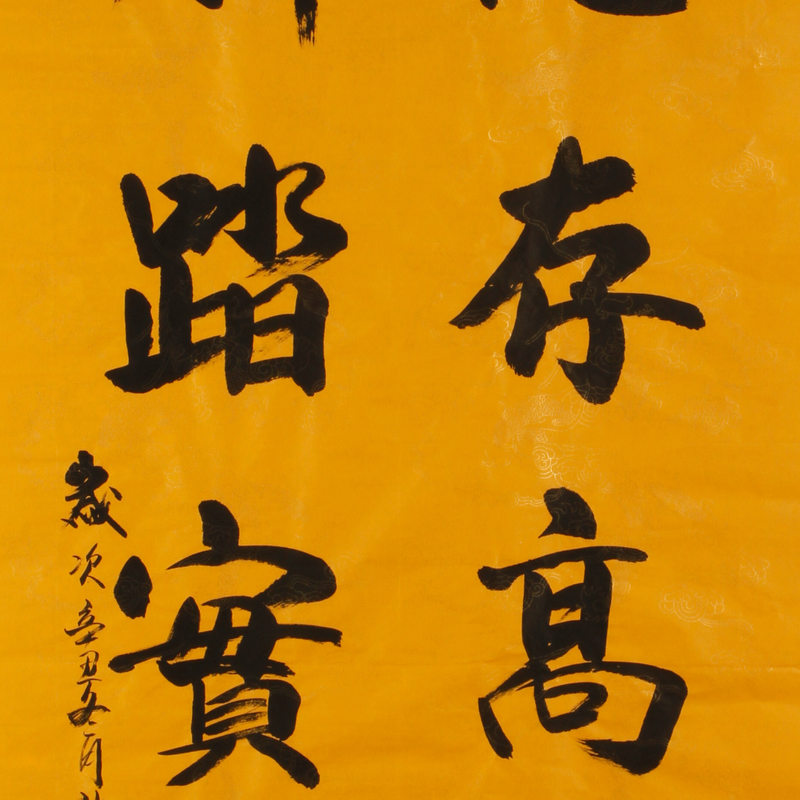 存高
踏實
歲次辛丑冬月